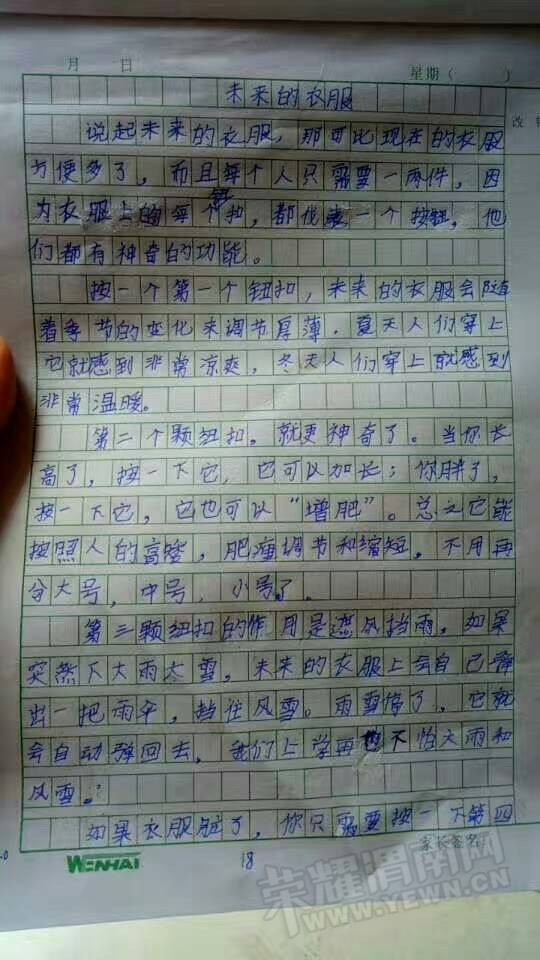 月 日 星期( )
未来的衣服
说起未来的衣服，那可比现在的衣服
方便多了，而且每个人只需要一两件，因
为衣服上的每个钮扣，都代表一个按钮，他
们都有神奇的功能。
按一个第一个钮扣，未来的衣服会随
着季节的变化来调节厚薄．夏天人们穿上
它就感到非常凉爽，冬天人们穿上就感到
非常温暖。
第二个颗纽扣。就更神奇了。当你长
高了，按一下它，它可以加长；你胖了，
按一下它，它也可以“增肥”。总之它能
按照人的高矮，肥瘦调节和缩短，不用再
分大号，中号，小号了．
第三颗纽扣的作用是遮风挡雨，如果
突然下大雨大雪，未来的衣服上会自己
出一把雨伞，挡住风雪。雨雪停了，它就
会自动弹回去，我们上学再也不怕大雨和
风雪．
如果衣服脏了，你只需要按一下第四
家长签名
WENHAI
18
荣耀渭南网
WWW.YEWN.CN